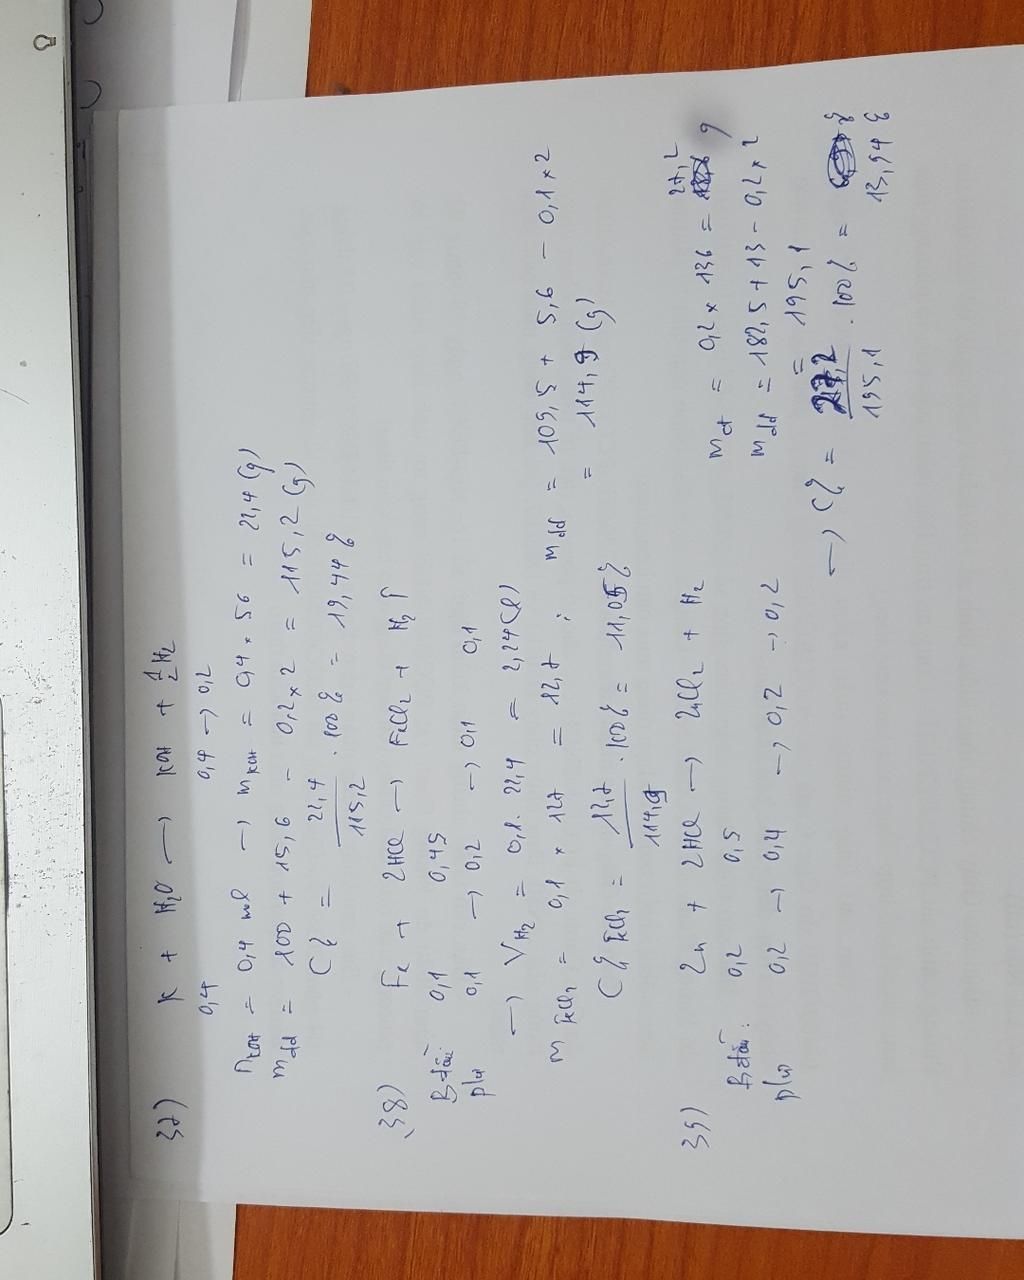 37) K + H₂O → KOH + 1/2 H₂
0,4 0,4 → 0,2
nKOH = 0,4 mol → mKOH = 0,4 × 56 = 22,4 (g)
mdd = 100 + 15,6 - 0,2 × 2 = 115,2 (g)
C% = 22,4/115,2 . 100% = 19,44%
38) Fe + 2HCl → FeCl₂ + H₂↑
B.đầu: 0,1 0,45
p/ư 0,1 → 0,2 → 0,1 0,1
→ VH₂ = 0,1 . 22,4 = 2,24 (l)
mFeCl₂ = 0,1 × 127 = 12,7 ; mdd = 109,5 + 5,6 - 0,1 × 2
= 114,9 (g)
C% FeCl₂ = 12,7/114,9 . 100% = 11,05%
39) Zn + 2HCl → ZnCl₂ + H₂
B.đầu: 0,2 0,5
p/ư 0,2 → 0,4 → 0,2 → 0,2
mct = 0,2 × 136 = 27,2 g
mdd = 182,5 + 13 - 0,2 × 2
= 195,1
→ C% = 27,2/195,1 . 100% = 13,94%